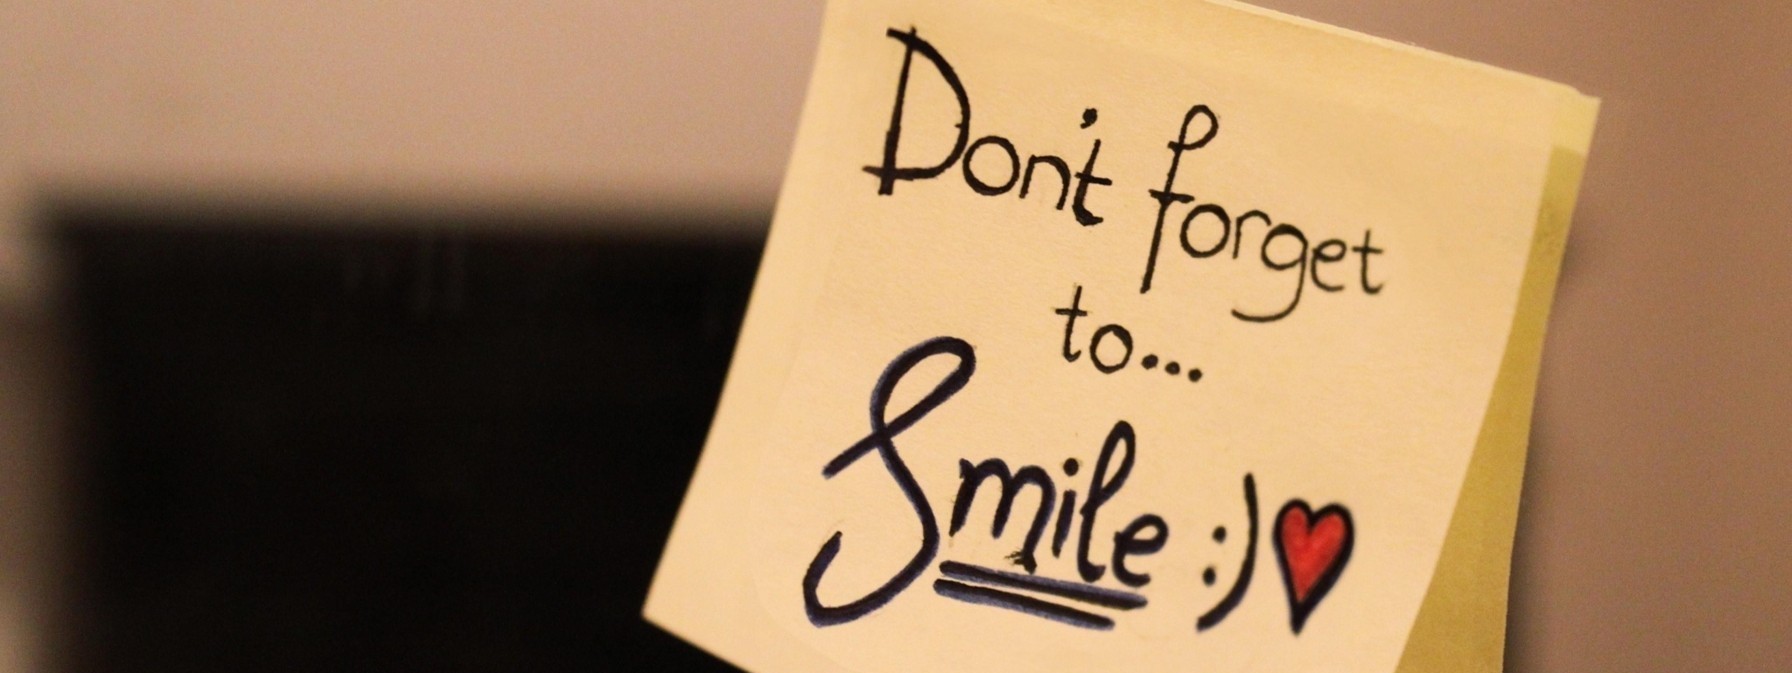 Don't forget
to...
Smile :)♥